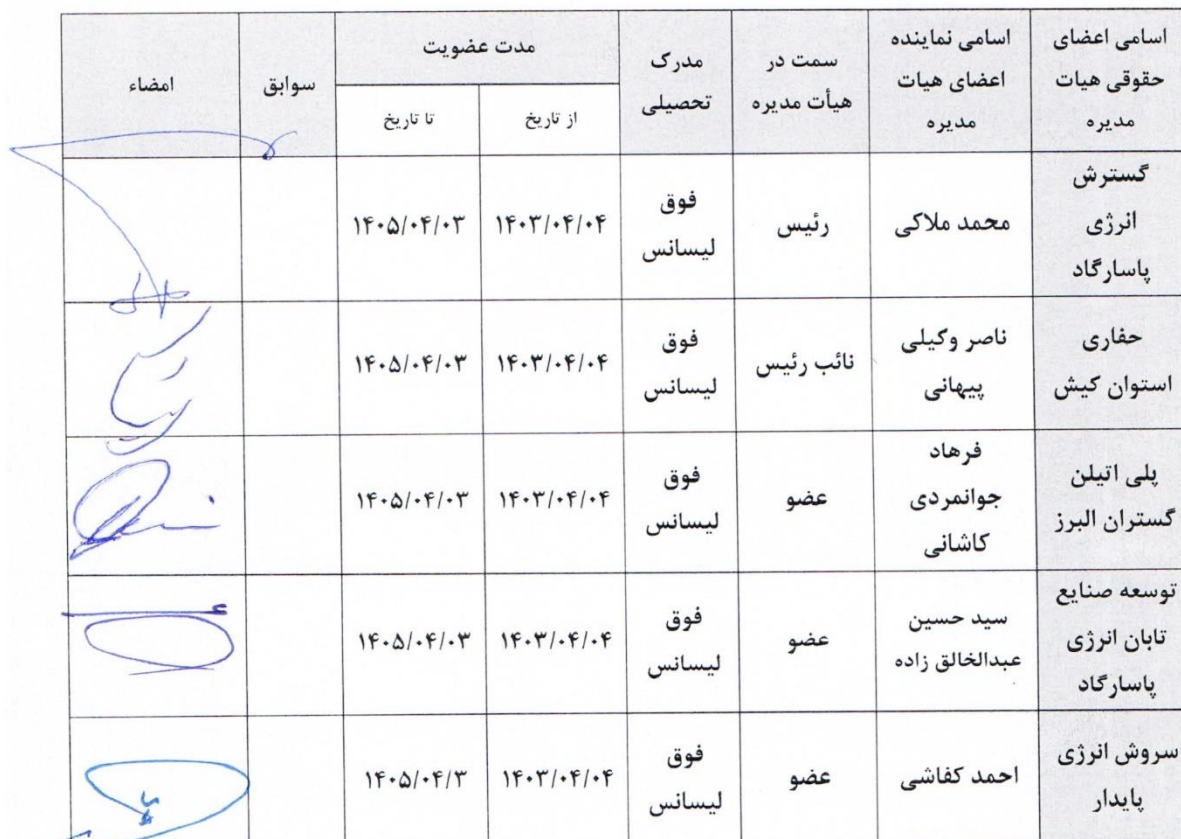 اسامی اعضای حقوقی هیات مدیره
اسامی نماینده اعضای هیات مدیره
سمت در هیأت مدیره
مدرک تحصیلی
مدت عضویت
از تاریخ
تا تاریخ
سوابق
امضاء
گسترش انرژی پاسارگاد
محمد ملاکی
رئیس
فوق لیسانس
۱۴۰۳/۰۴/۰۴
۱۴۰۵/۰۴/۰۳
حفاری استوان کیش
ناصر وکیلی پیهانی
نائب رئیس
فوق لیسانس
۱۴۰۳/۰۴/۰۴
۱۴۰۵/۰۴/۰۳
پلی اتیلن گستران البرز
فرهاد جوانمردی کاشانی
عضو
فوق لیسانس
۱۴۰۳/۰۴/۰۴
۱۴۰۵/۰۴/۰۳
توسعه صنایع تابان انرژی پاسارگاد
سید حسین عبدالخالق زاده
عضو
فوق لیسانس
۱۴۰۳/۰۴/۰۴
۱۴۰۵/۰۴/۰۳
سروش انرژی پایدار
احمد کفاشی
عضو
فوق لیسانس
۱۴۰۳/۰۴/۰۴
۱۴۰۵/۰۴/۳